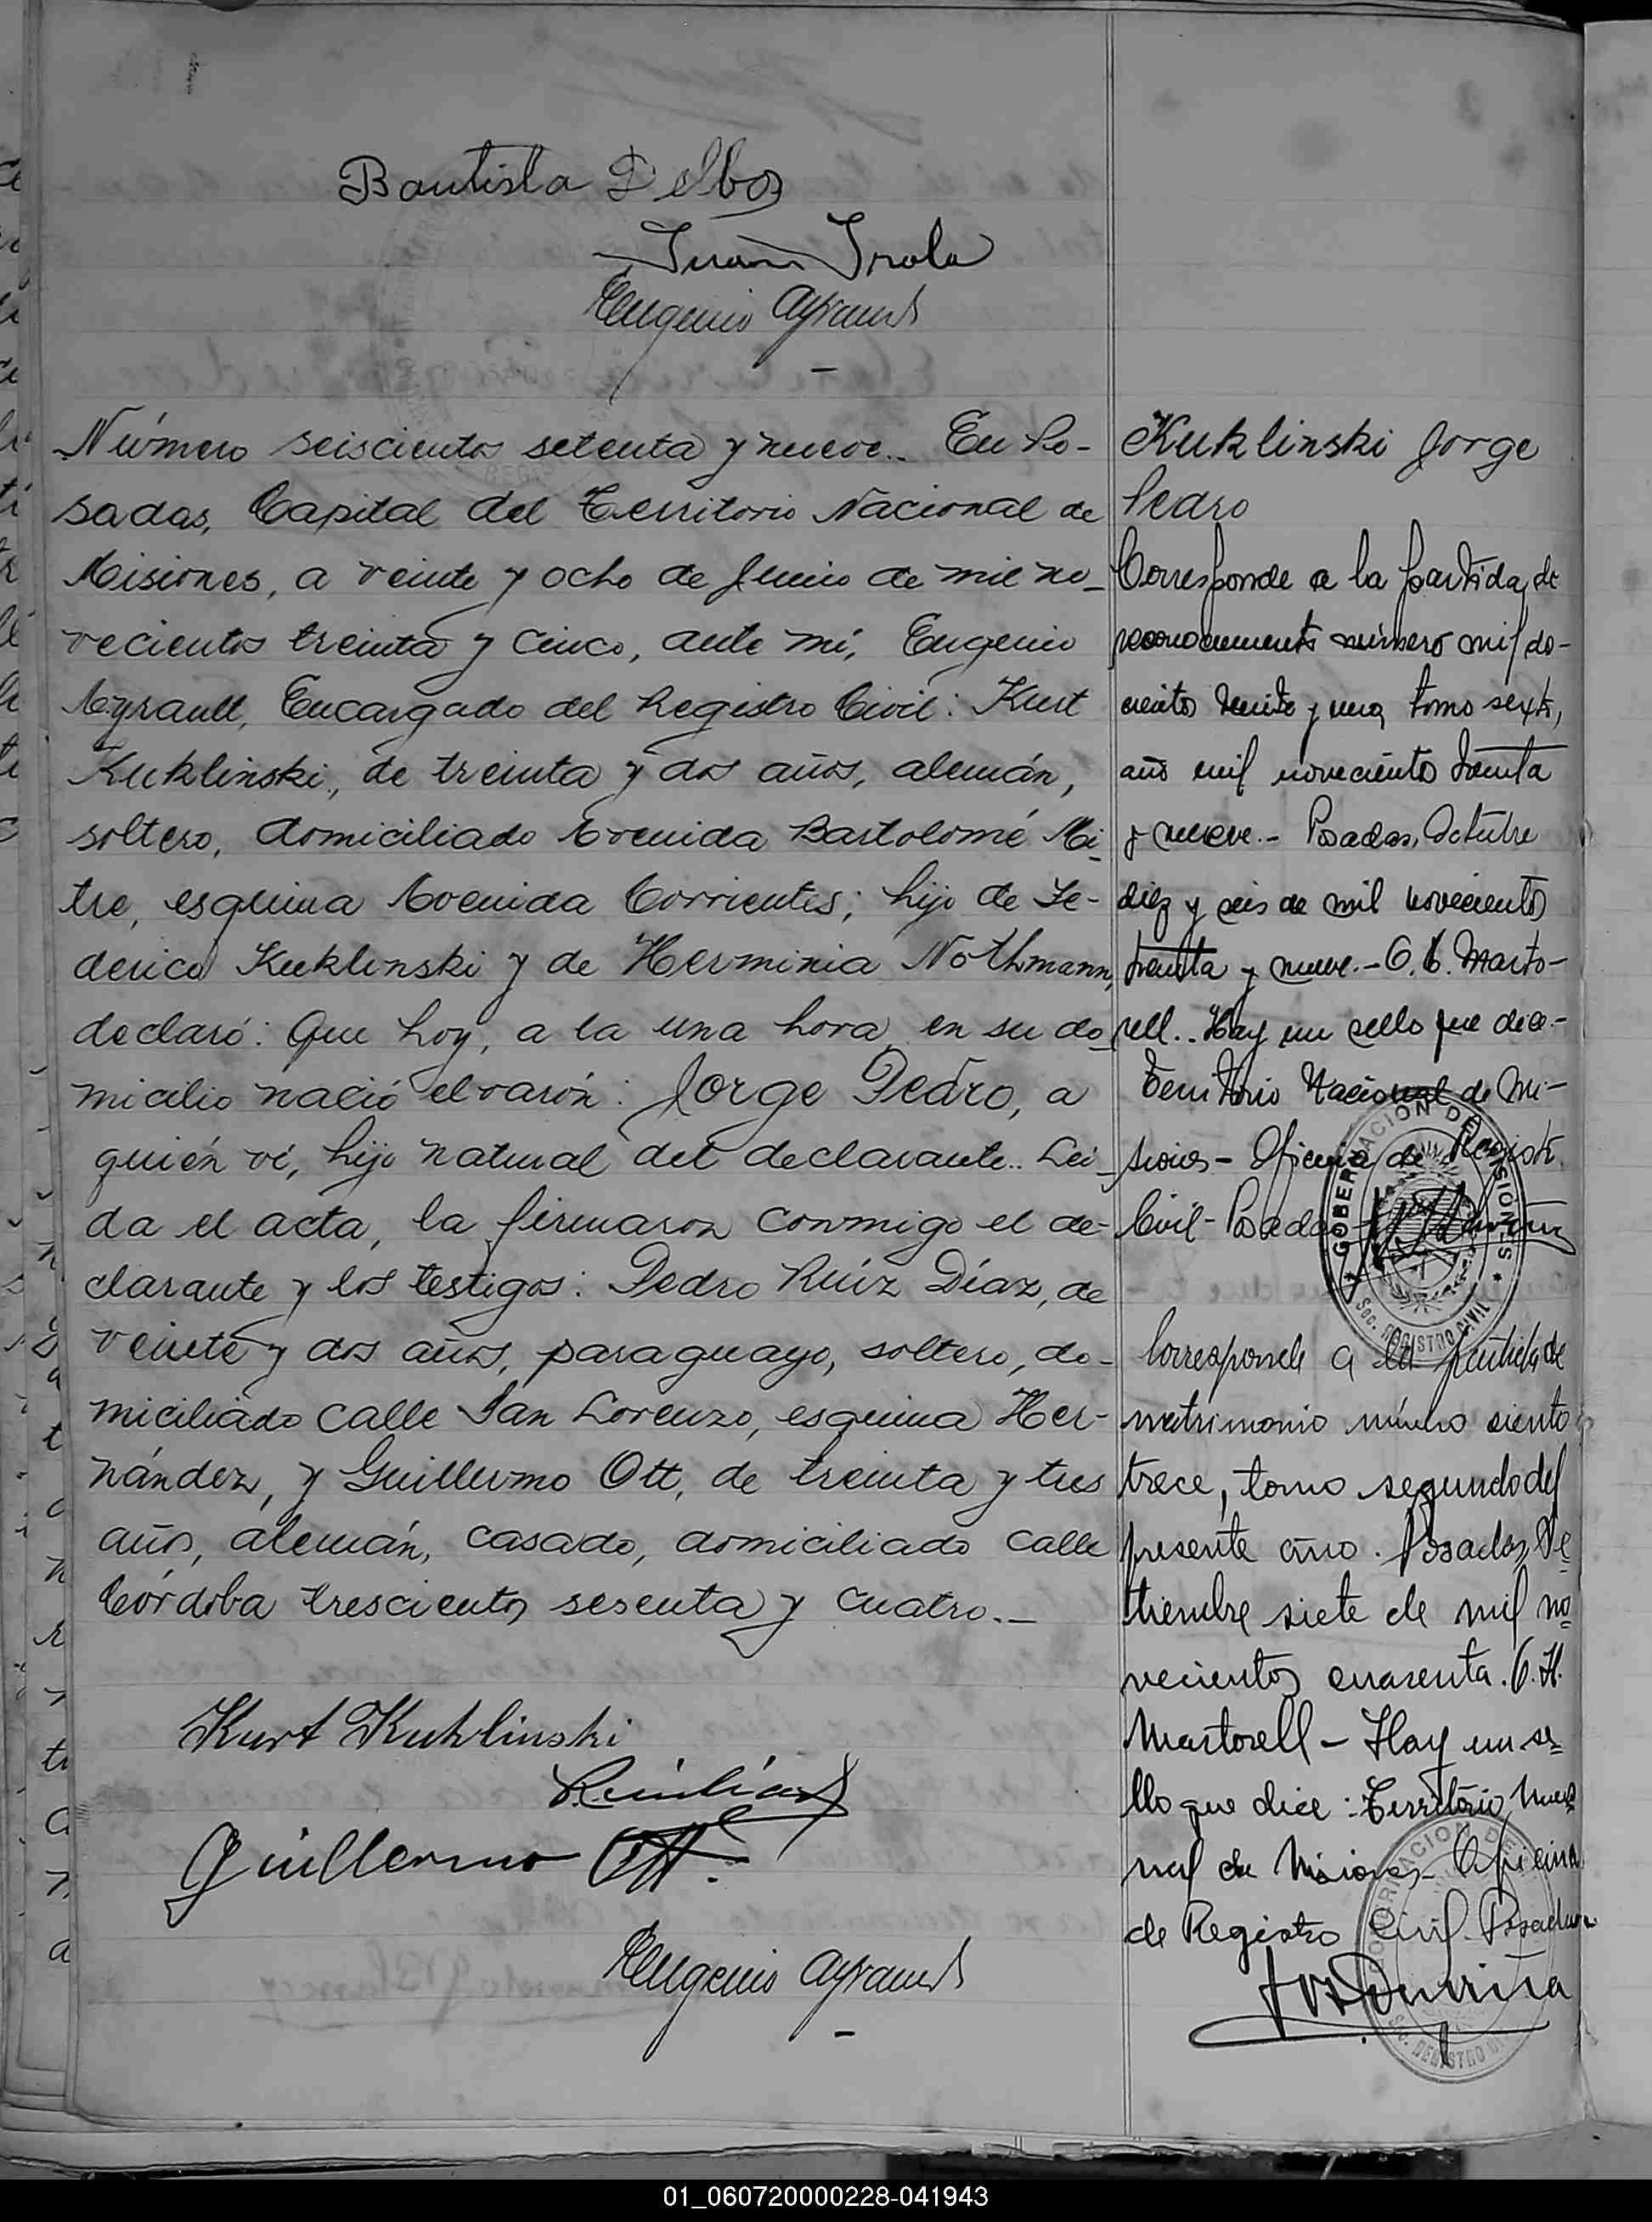 Bautista Delbos
Juan Irala
Eugenio Ayrault
Número seiscientos setenta y nueve.. En Po-
sadas, Capital del Territorio Nacional de
Misiones, a veinte y ocho de Junio de mil no-
vecientos treinta y cinco, ante mí, Eugenio
Ayrault, Encargado del Registro Civil: Kurt
Kuklinski, de treinta y dos años, alemán,
soltero, domiciliado Avenida Bartolomé Mi-
tre, esquina Avenida Corrientes; hijo de Fe-
derico Kuklinski y de Herminia Nothmann,
declaró: Que hoy, a la una hora, en su do-
micilio nació el varón: Jorge Pedro, a
quién ví, hijo natural del declarante.. Lei-
da el acta, la firmaron conmigo el de-
clarante y los testigos: Pedro Ruíz Díaz, de
veinte y dos años, paraguayo, soltero, do-
miciliado calle San Lorenzo, esquina Her-
nández, y Guillermo Ott, de treinta y tres
años, alemán, casado, domiciliado calle
Córdoba trescientos sesenta y cuatro.-
Kurt Kuklinski
Guillermo Ott.
Eugenio Ayrault
Kuklinski Jorge
Pedro
Corresponde a la partida de
reconocimiento número mil do-
cientos veinte y una, tomo sexto,
año mil novecientos treinta
y nueve.- Posadas, Octubre
diez y seis de mil novecientos
treinta y nueve.- Marto-
rell.- Hay un sello que dice.-
Territorio Nacional de Mi-
siones - Oficina de Registro
Civil - Posadas
GOBERNACION DE MISIONES
Sec. REGISTRO CIVIL
Corresponde a la partida de
matrimonio número siento
trece, tomo segundo del
presente año. Posadas, Se-
tiembre siete de mil no-
vecientos cuarenta.
Martorell - Hay un se-
llo que dice: Territorio Nacio-
nal de Misiones - Oficina
de Registro Civil. Posadas
GOBERNACION DE
Sec. REGISTRO
01_060720000228-041943